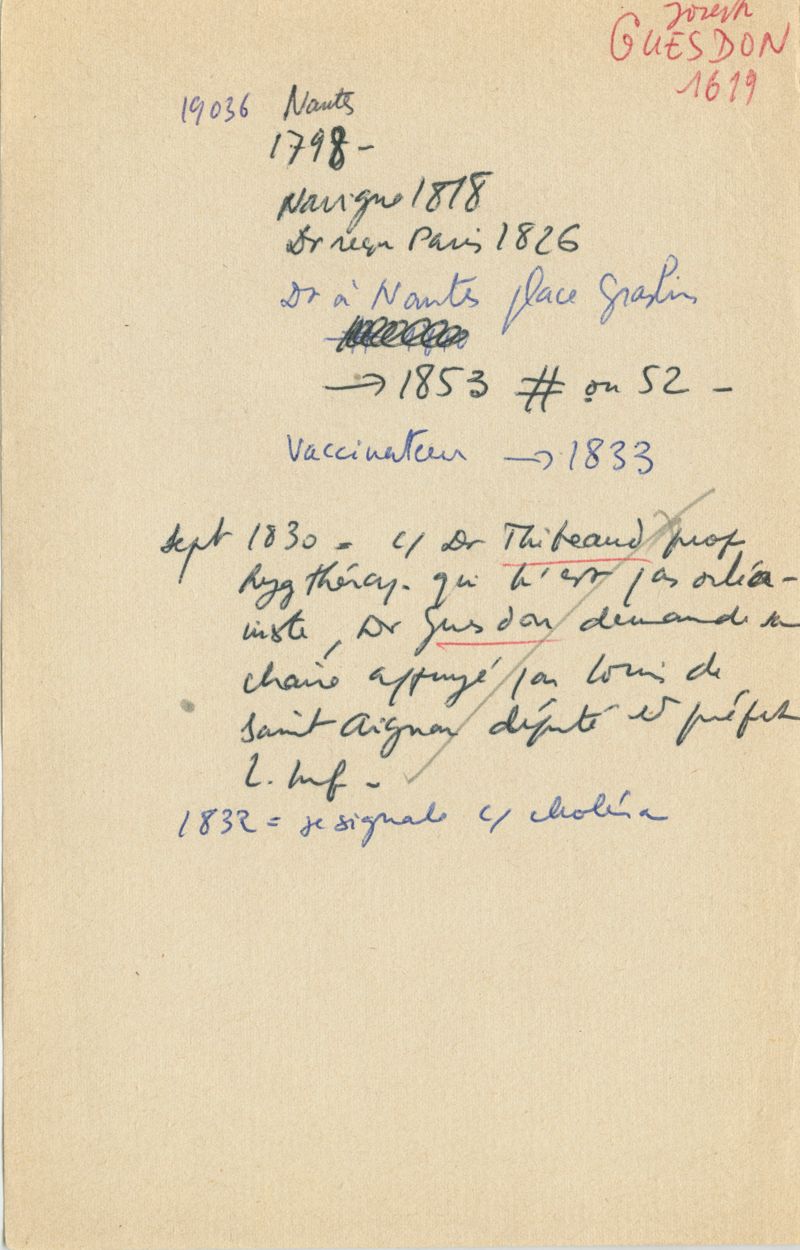 Joseph
GUESDON
1619
19036 Nantes
1798 -
Navigue 1818
Dr reçu Paris 1826
Dr à Nantes place Graslin
→ 1853 # ou 52 -
Vaccinateur → 1833
Sept 1830 = c/ Dr Thibeaud prof
hyg thérap. qui n'est pas orléa-
niste, Dr Guesdon demande sa
chaire appuyé par Louis de
Saint Aignan député et préfet
L. Inf -
1832 = se signale c/ choléra